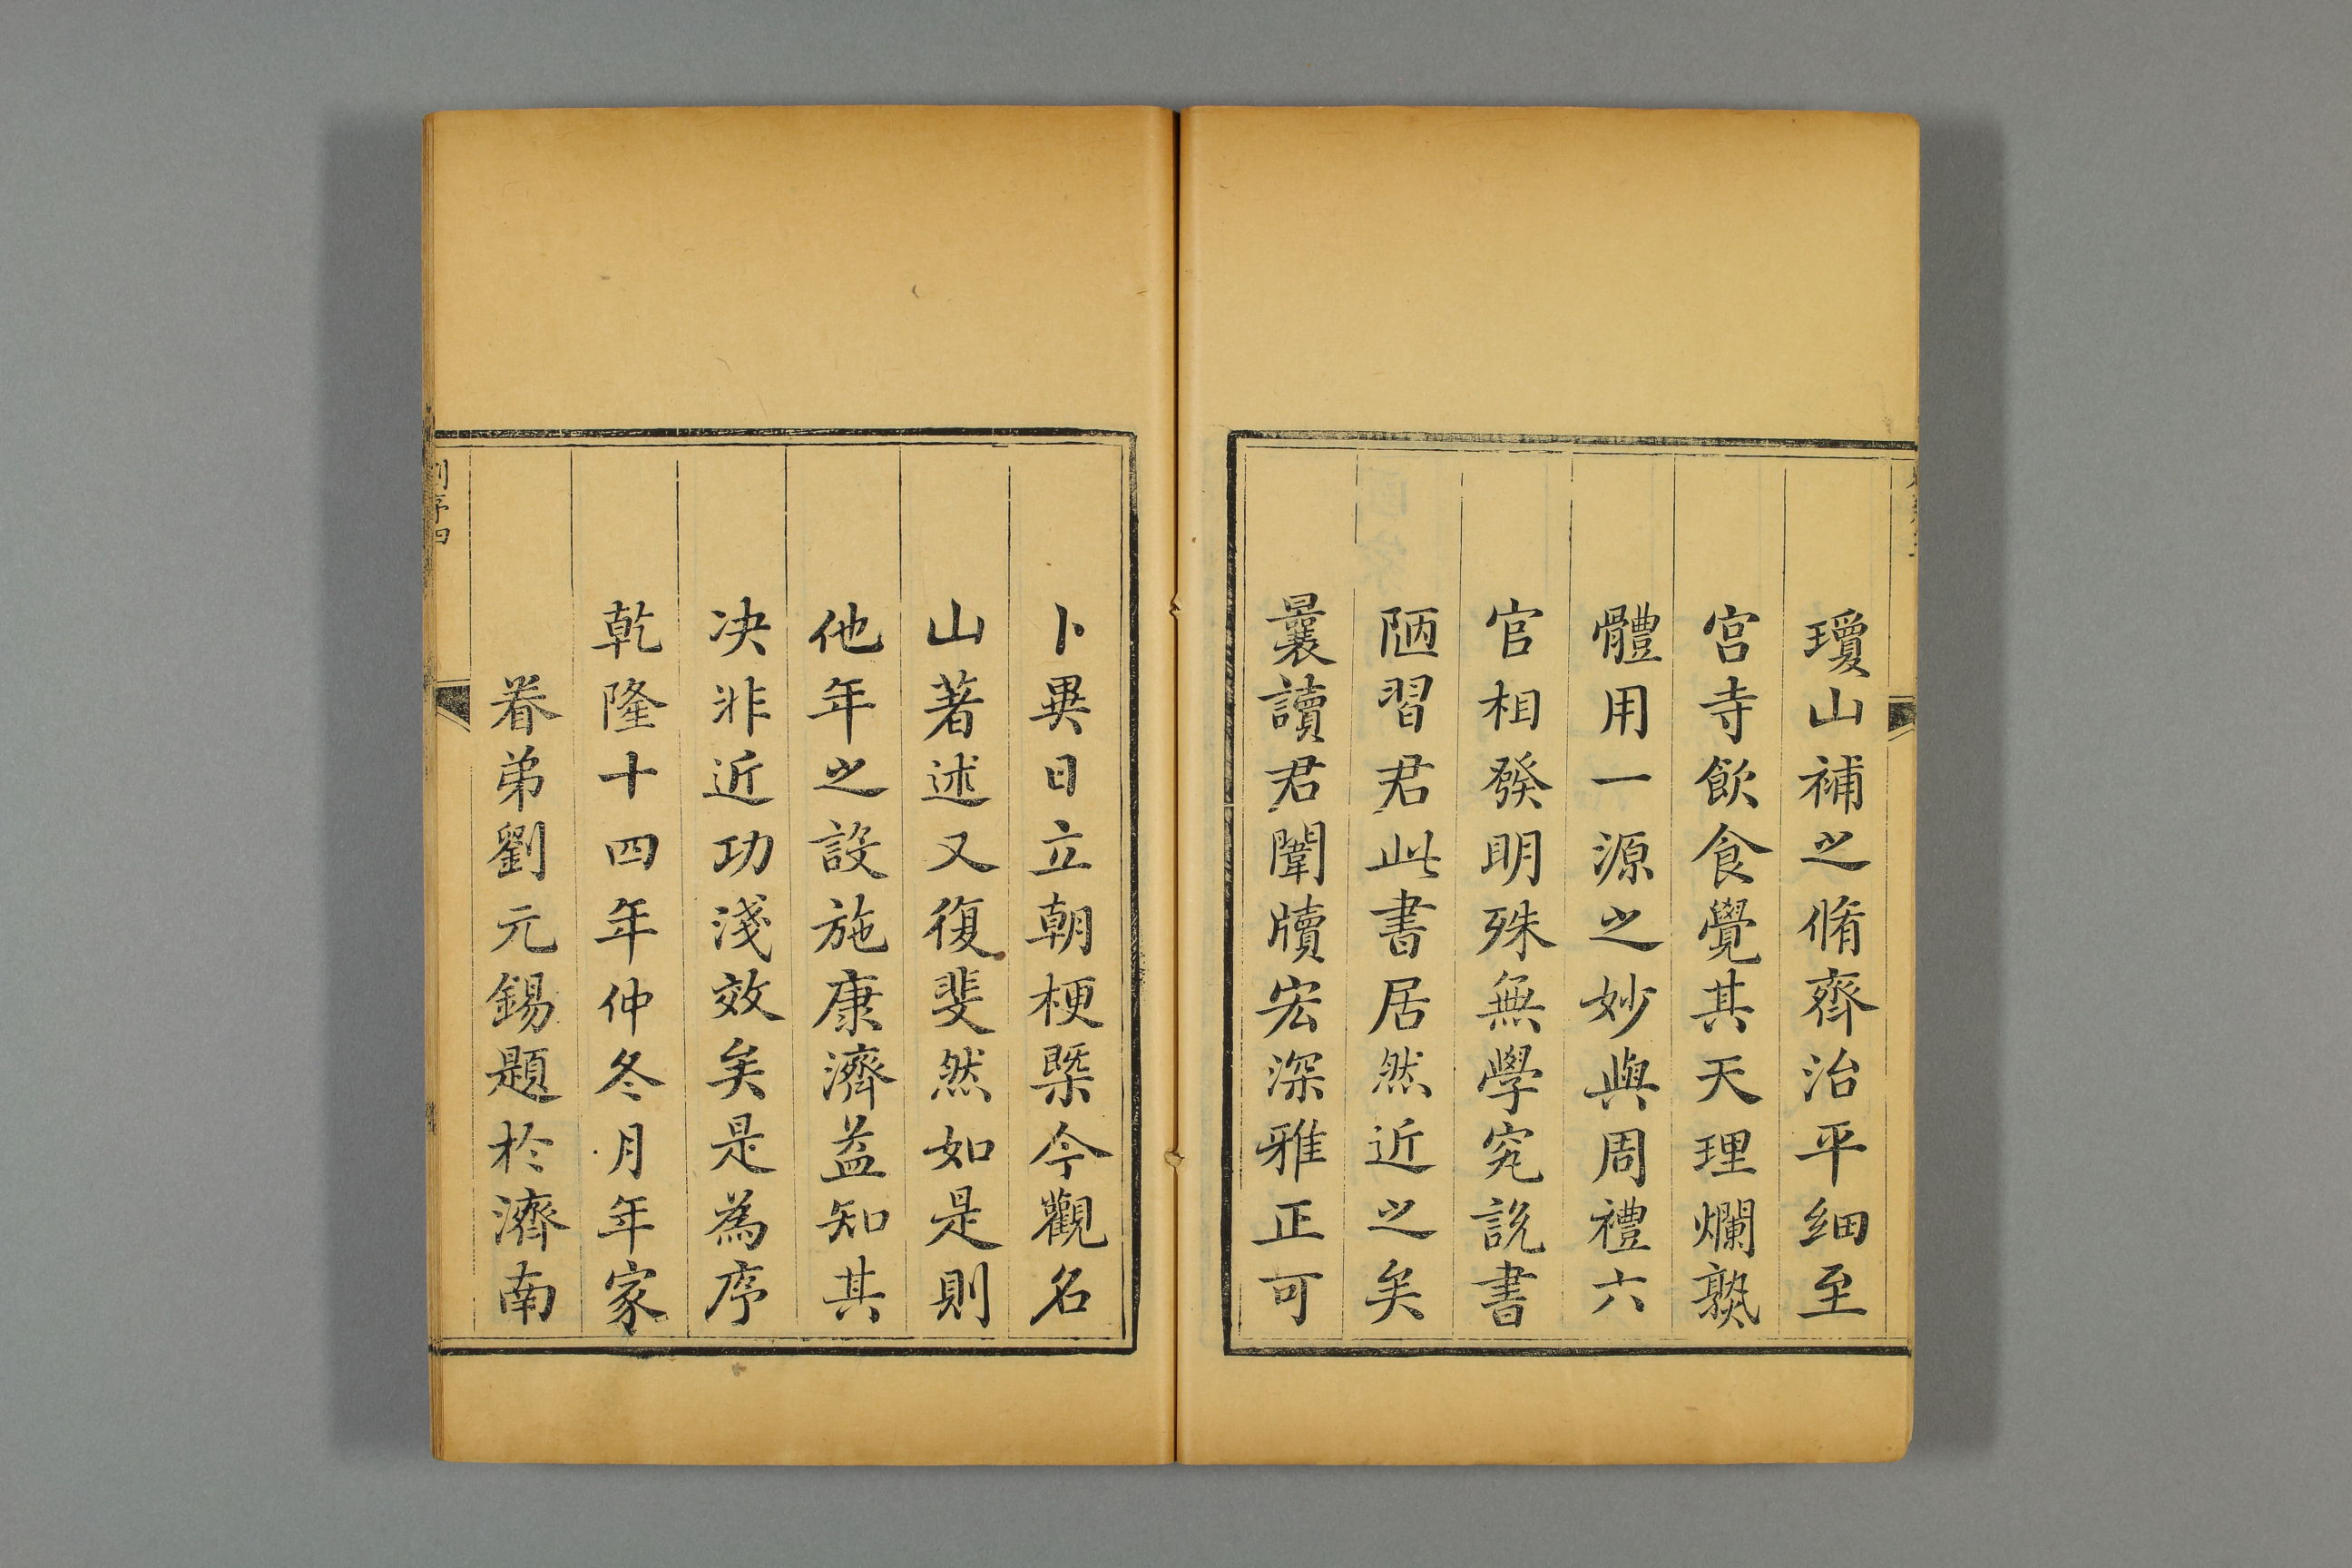 瓊山補之脩齊治平細至
宮寺飲食覺其天理爛熟
體用一源之妙與周禮六
官相發明殊無學究說書
陋習君此書居然近之矣
曩讀君闈牘宏深雅正可
卜異日立朝梗槩今觀名
山著述又復斐然如是則
他年之設施康濟益知其
决非近功淺效矣是為序
乾隆十四年仲冬月年家
眷弟劉元錫題於濟南
序四